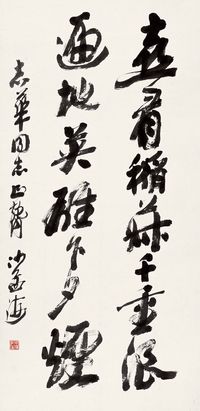 喜看稻菽千重浪
遍地英雄下夕煙
志華同志正腕 沙孟海